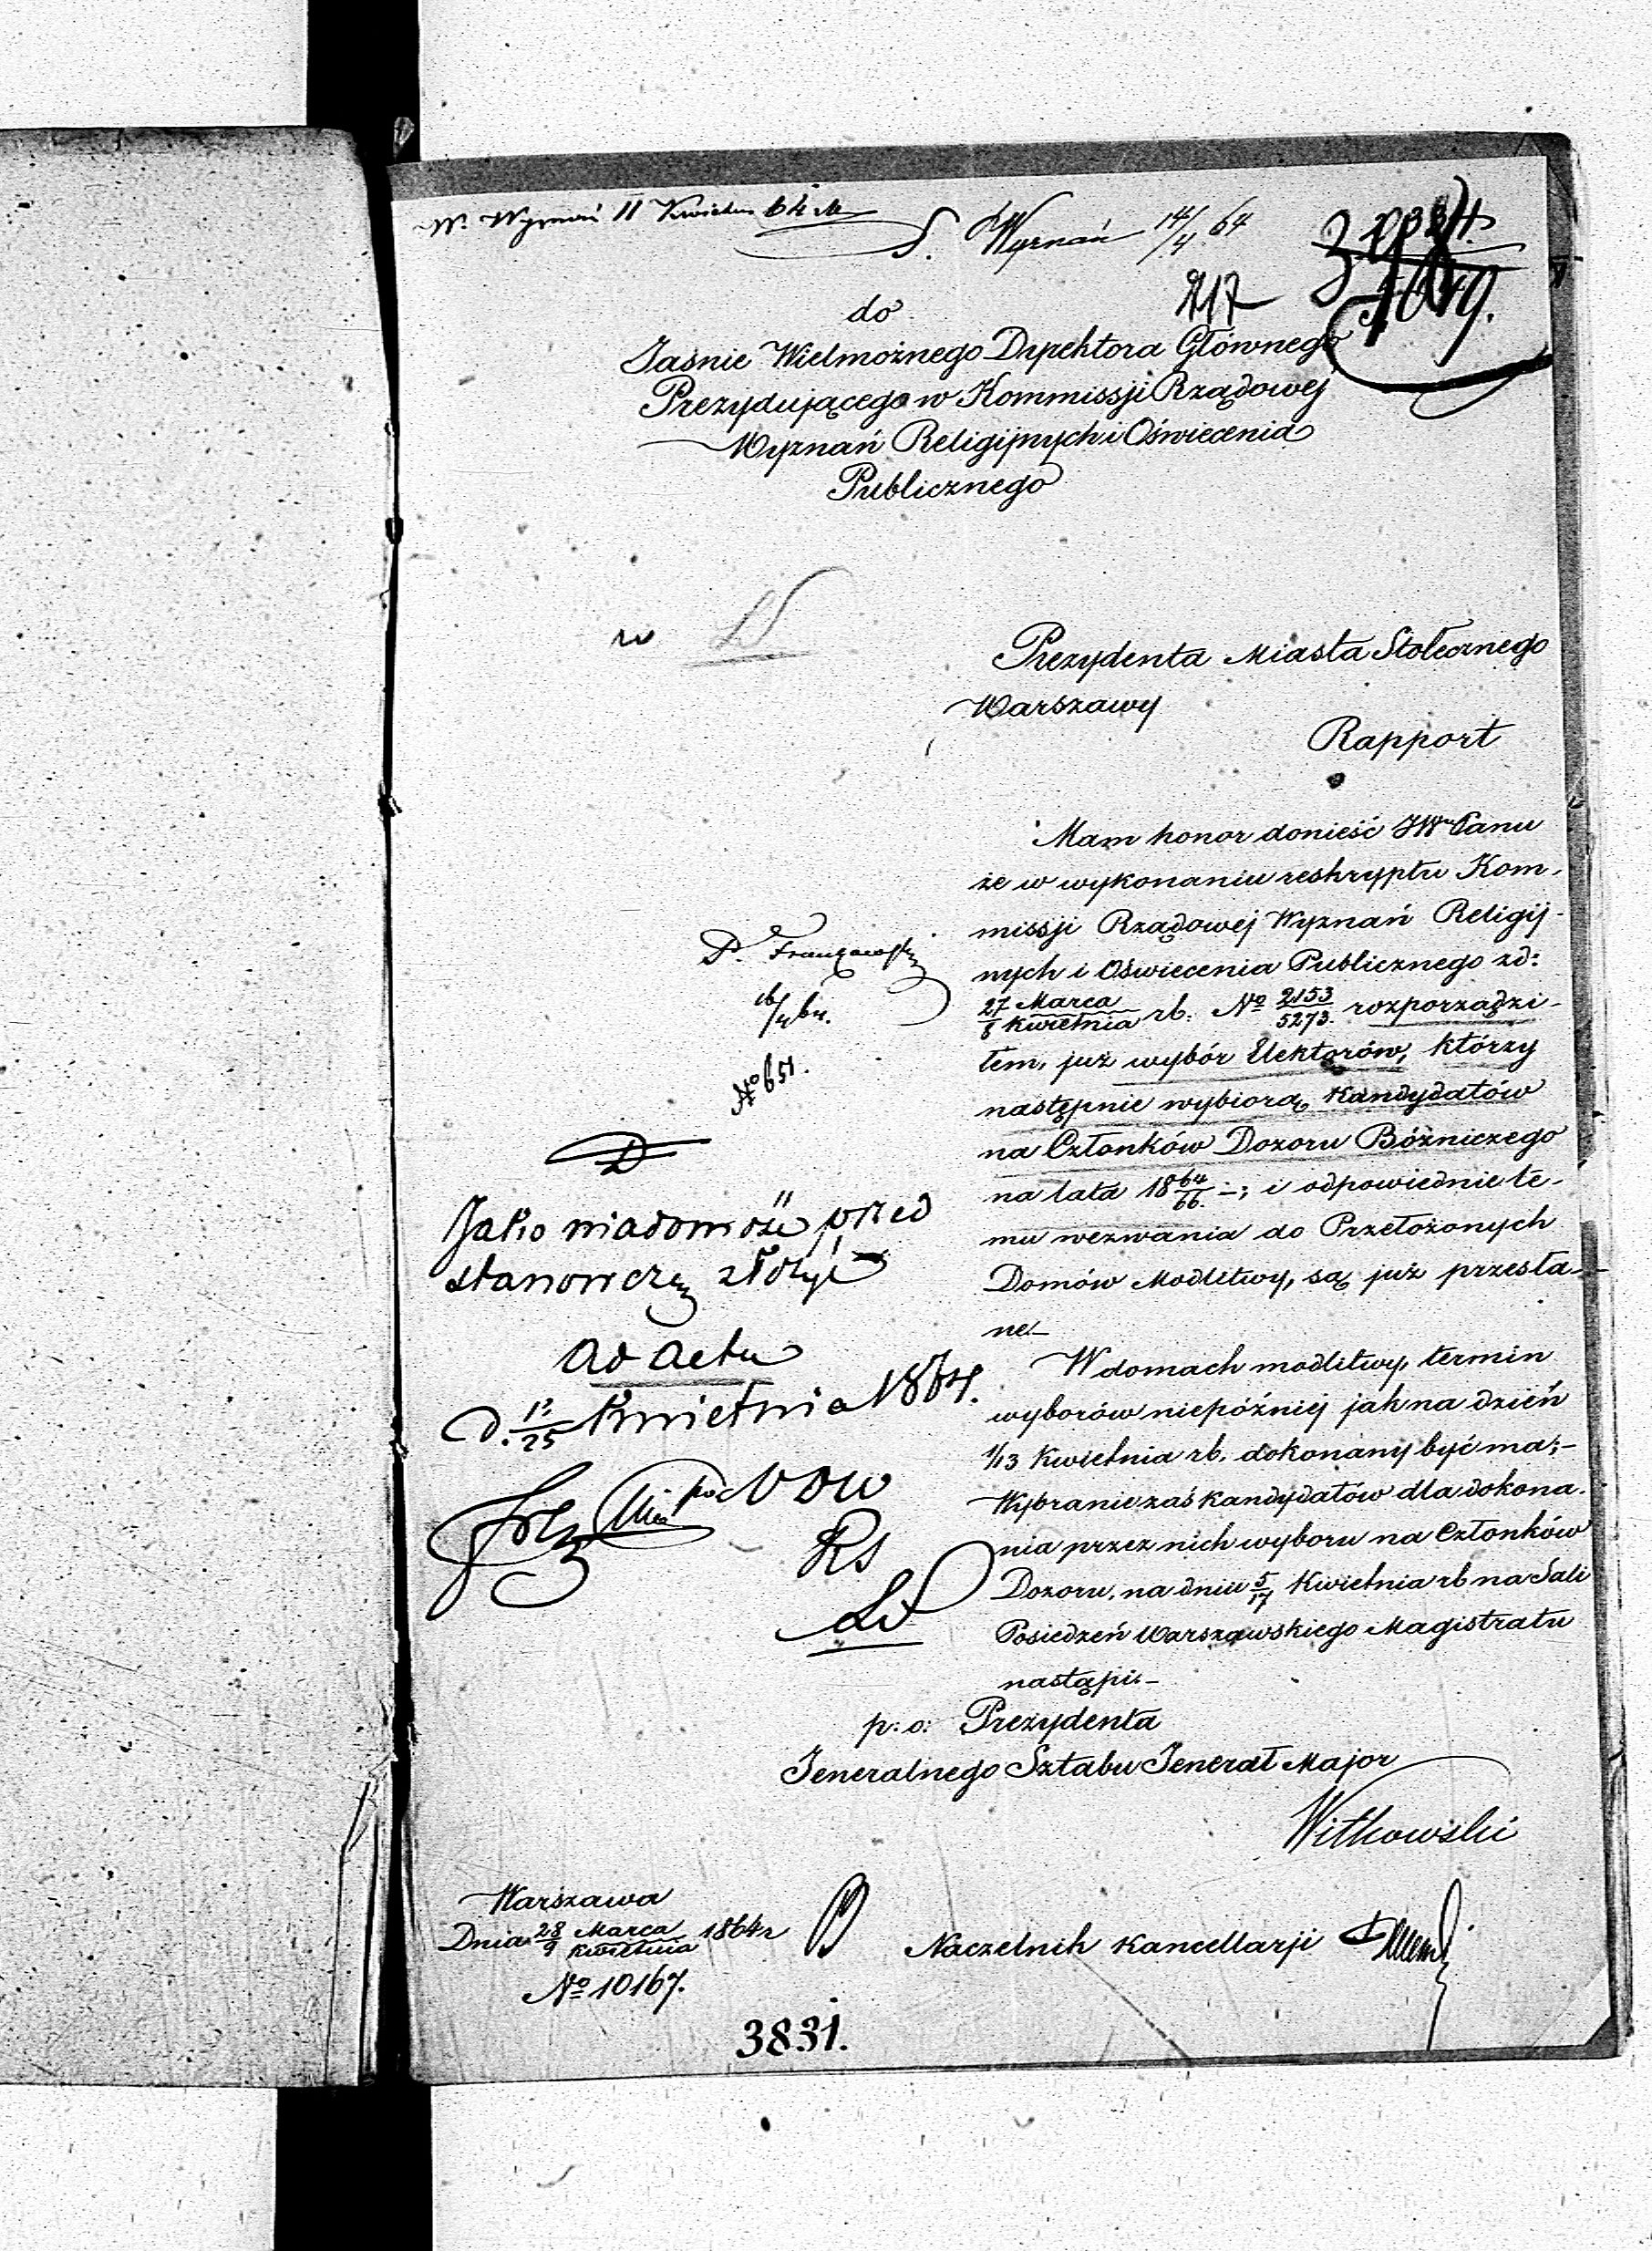 W. Wyznań 11 Kwietnia 64
S. Wyznań 14/4 64
217
do
Jaśnie Wielmożnego Dyrektora Głównego
Prezydującego w Kommissji Rządowej
Wyznań Religijnych i Oświecenia
Publicznego
w
Prezydenta Miasta Stołecznego
Warszawy
Rapport
Mam honor donieść JWmu Panu
że w wykonaniu reskryptu Kom-
missji Rządowej Wyznań Religij-
nych i Oświecenia Publicznego zd:
27 Marca/8 Kwietnia rb: No 2153/5273. rozporządzi-
łem, już wybór Elektorów, którzy
następnie wybiorą Kandydatów
na Członków Dozoru Bóżniczego
na lata 18 64/66. -; i odpowiednie te-
mu wezwania do Przełożonych
Domów Modlitwy, są już przesła-
ne.-
W domach modlitwy, termin
wyborów niepóźniej jak na dzień
1/13 Kwietnia rb. dokonany być ma;-
Wybranie zaś kandydatów dla dokona-
nia przez nich wyboru na Członków
Dozoru, na dniu 5/17 Kwietnia rb na Sali
Posiedzeń Warszawskiego Magistratu
nastąpi.-
p: o: Prezydenta
Jeneralnego Sztabu Jenerał Major
Witkowski
Naczelnik Kancellarji
16/4 64.
No 651.
D
Jako wiadomość przed
stanowczą złożyć
ad acta
d. 13/25 Kwietnia 1864.
Warszawa
Dnia 28 Marca/9 Kwietnia 1864 r
No 10167.
3831.